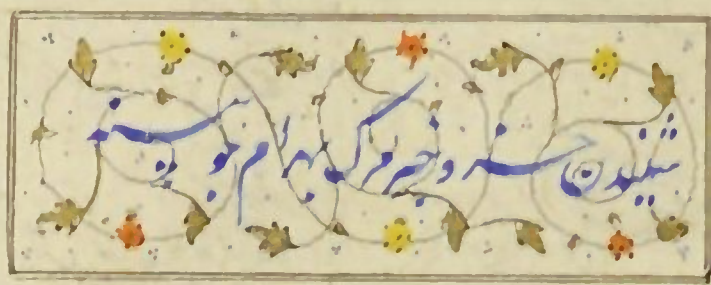 شنیدن خسرو خبر مرگ بهرام چوبینه